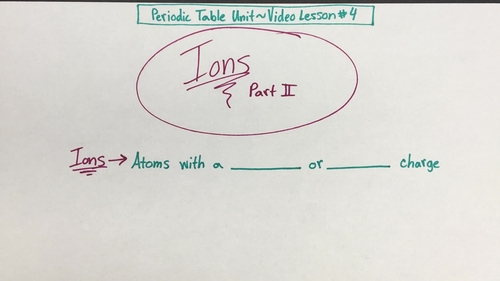 Periodic Table Unit~Video Lesson #4
Ions
Part II
Ions → Atoms with a ________ or ________ charge